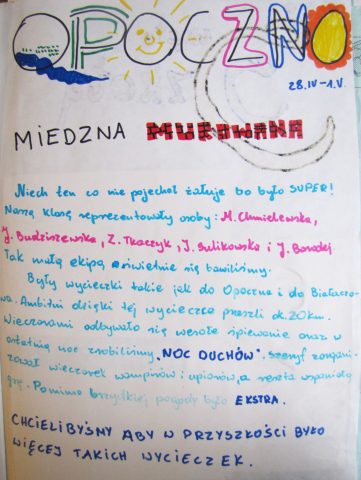 OPOCZNO
28.IV-1.V.
MIEDZNA MUROWANA
Niech ten co nie pojechał żałuje bo było SUPER!
Naszą klasę reprezentowały osoby: M. Chmielewska,
J. Budziszewska, Z. Tkaczyk, J. Sulikowska i J.
Tak małą ekipą świetnie się bawiliśmy.
Były wycieczki takie jak do Opoczna i do Białaczo-
wa. Ambitni dzięki tej wycieczce przeszli ok. 20 km.
Wieczorami odbywało się wesołe śpiewanie oraz w
ostatnią noc zrobiliśmy "NOC DUCHÓW". szeryf zorgani-
zował wieczorek wampirów i upiorów, a reszta wspaniałą
grę. Pomimo brzydkiej pogody było EKSTRA.
CHCIELIBYŚMY ABY W PRZYSZŁOŚCI BYŁO
WIĘCEJ TAKICH WYCIECZEK.